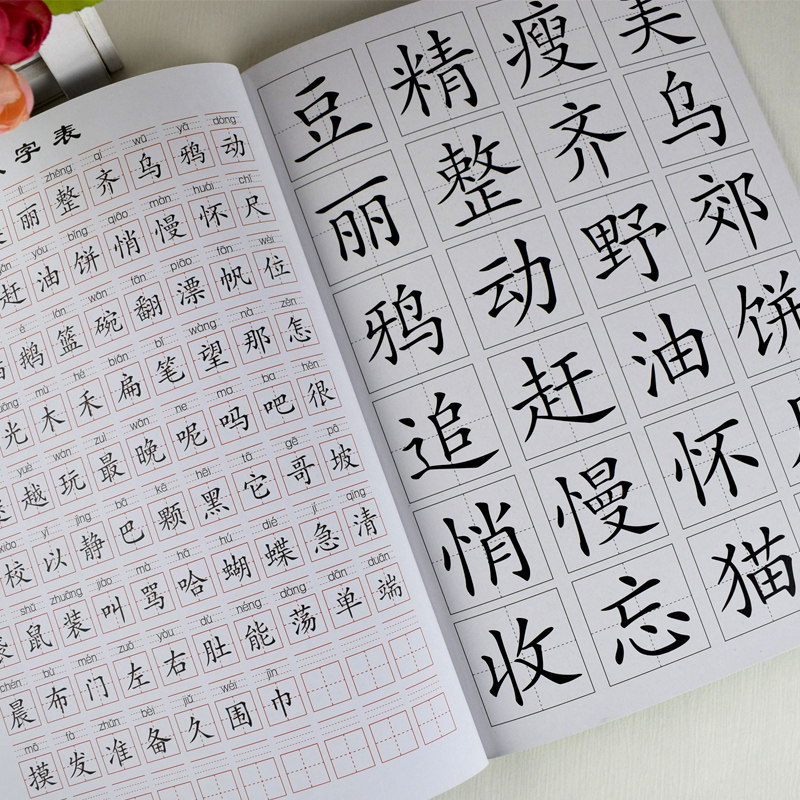 字表
lì zhěng qí wū yā dòng
丽 整 齐 乌 鸦 动
yóu bǐng qiāo màn huái chǐ
赶 油 饼 悄 慢 怀 尺
é lán wǎn fān piāo fān wèi
鹅 篮 碗 翻 漂 帆 位
mù hé biǎn bǐ wàng nà zěn
光 木 禾 扁 笔 望 那 怎
yuè wán zuì wǎn ne ma ba hěn
越 玩 最 晚 呢 吗 吧 很
xiào yǐ jìng bā kē hēi tā gē pō
校 以 静 巴 颗 黑 它 哥 坡
shǔ zhuāng jiào mà hā hú dié jí qīng
鼠 装 叫 骂 哈 蝴 蝶 急 清
chén bù mén zuǒ yòu dù néng dàng dān duān
晨 布 门 左 右 肚 能 荡 单 端
mō fā zhǔn bèi jiǔ wéi jīn
摸 发 准 备 久 围 巾
豆 精 瘦 美
丽 整 齐 乌
鸦 动 野 郊
追 赶 油 饼
悄 慢 怀
收 忘 猫